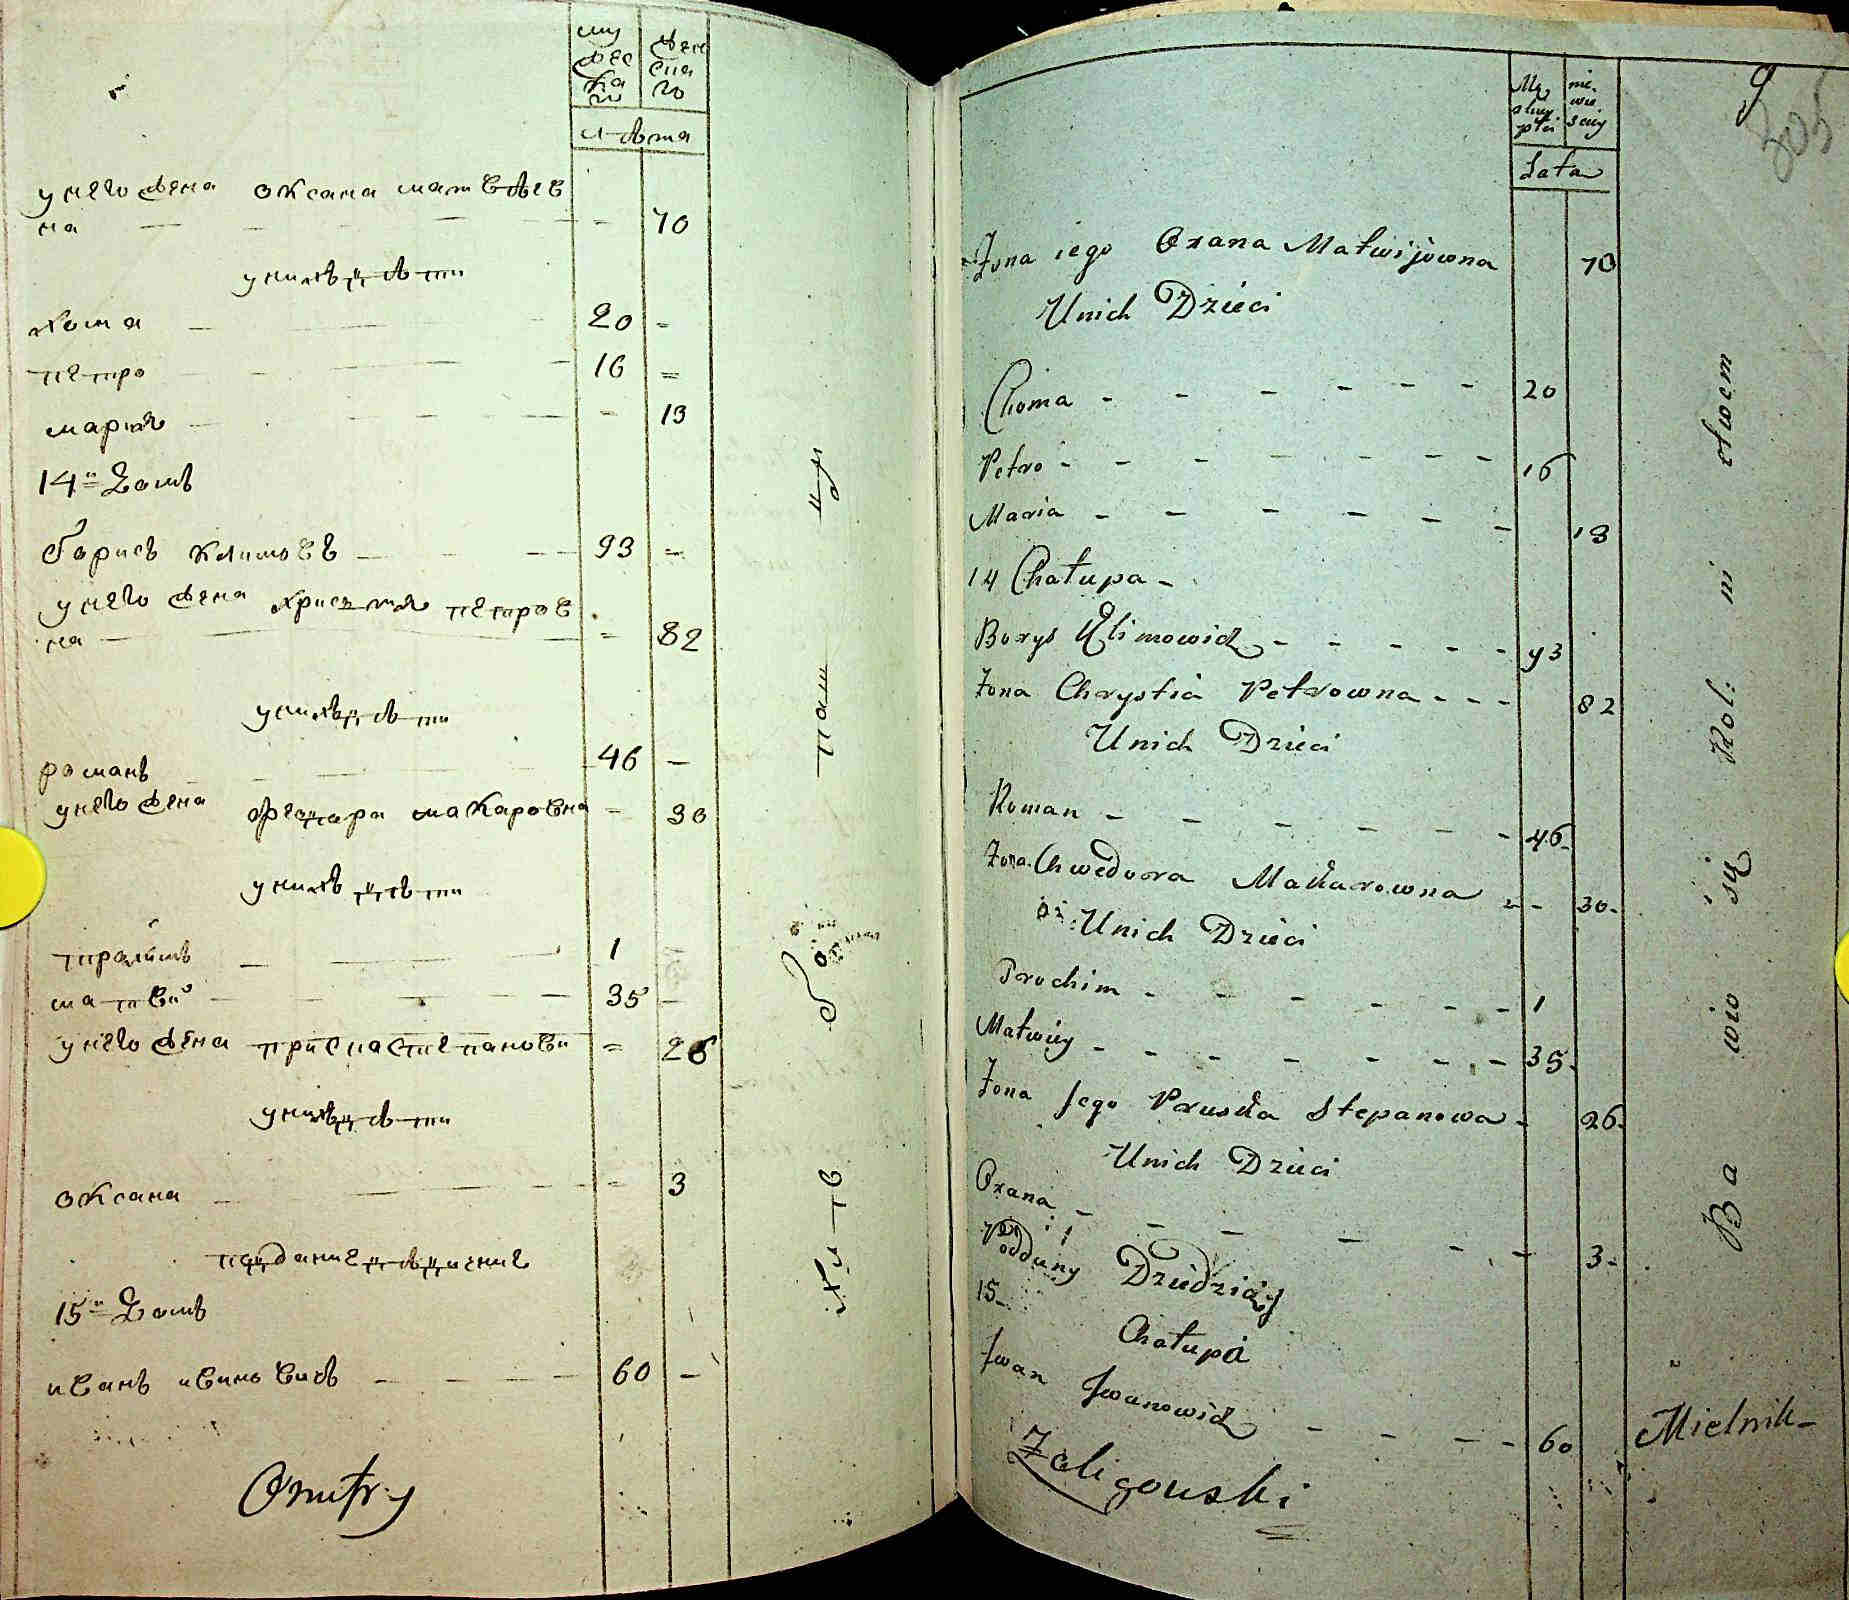 муж
еска
го
жен
ска
го
лѣта
у него жена оксана матвѣев
на — 70
у нихъ дѣти
хома — 20 -
петро — 16 =
мария — 13
14й домъ
борисъ климовъ — 93 =
у него жена христия петров
на — = 82
у нихъ дѣти
романъ — 46 —
у него жена федора макаровна = 30
у нихъ дѣти
трохимъ — 1
матвій — 35 —
у него жена приска степанови = 26
у нихъ дѣти
оксана — = 3
подание дѣдичние
15й домъ
иванъ ивановичъ — 60 —
Onufry
9
305
Mę
skiey
płci
nie
wie
sciey
Lata
Żona iego Oxana Matwijowna 70
Unich Dzieci
Choma - - - - - - 20
Petro - - - - - - - 16
Maria - - - - - - 13
14 Chałupa -
Borys Klimowicz - - - - - 93
Żona Chrystia Petrowna - - - 82
Unich Dzieci
Roman - - - - - - 46-
Żona Chwedora Makarowna - - 30-
Unich Dzieci
Prochim - - - - - - 1
Matwiy - - - - - - - 35-
Żona Jego Pruska Stepanowa - 26-
Unich Dzieci
Oxana - - - - - - 3-
Podduny Dziedziczny
15-
Chałupa
Jwan Jwanowicz - - - - 60
Mielnik-
Żeligowski